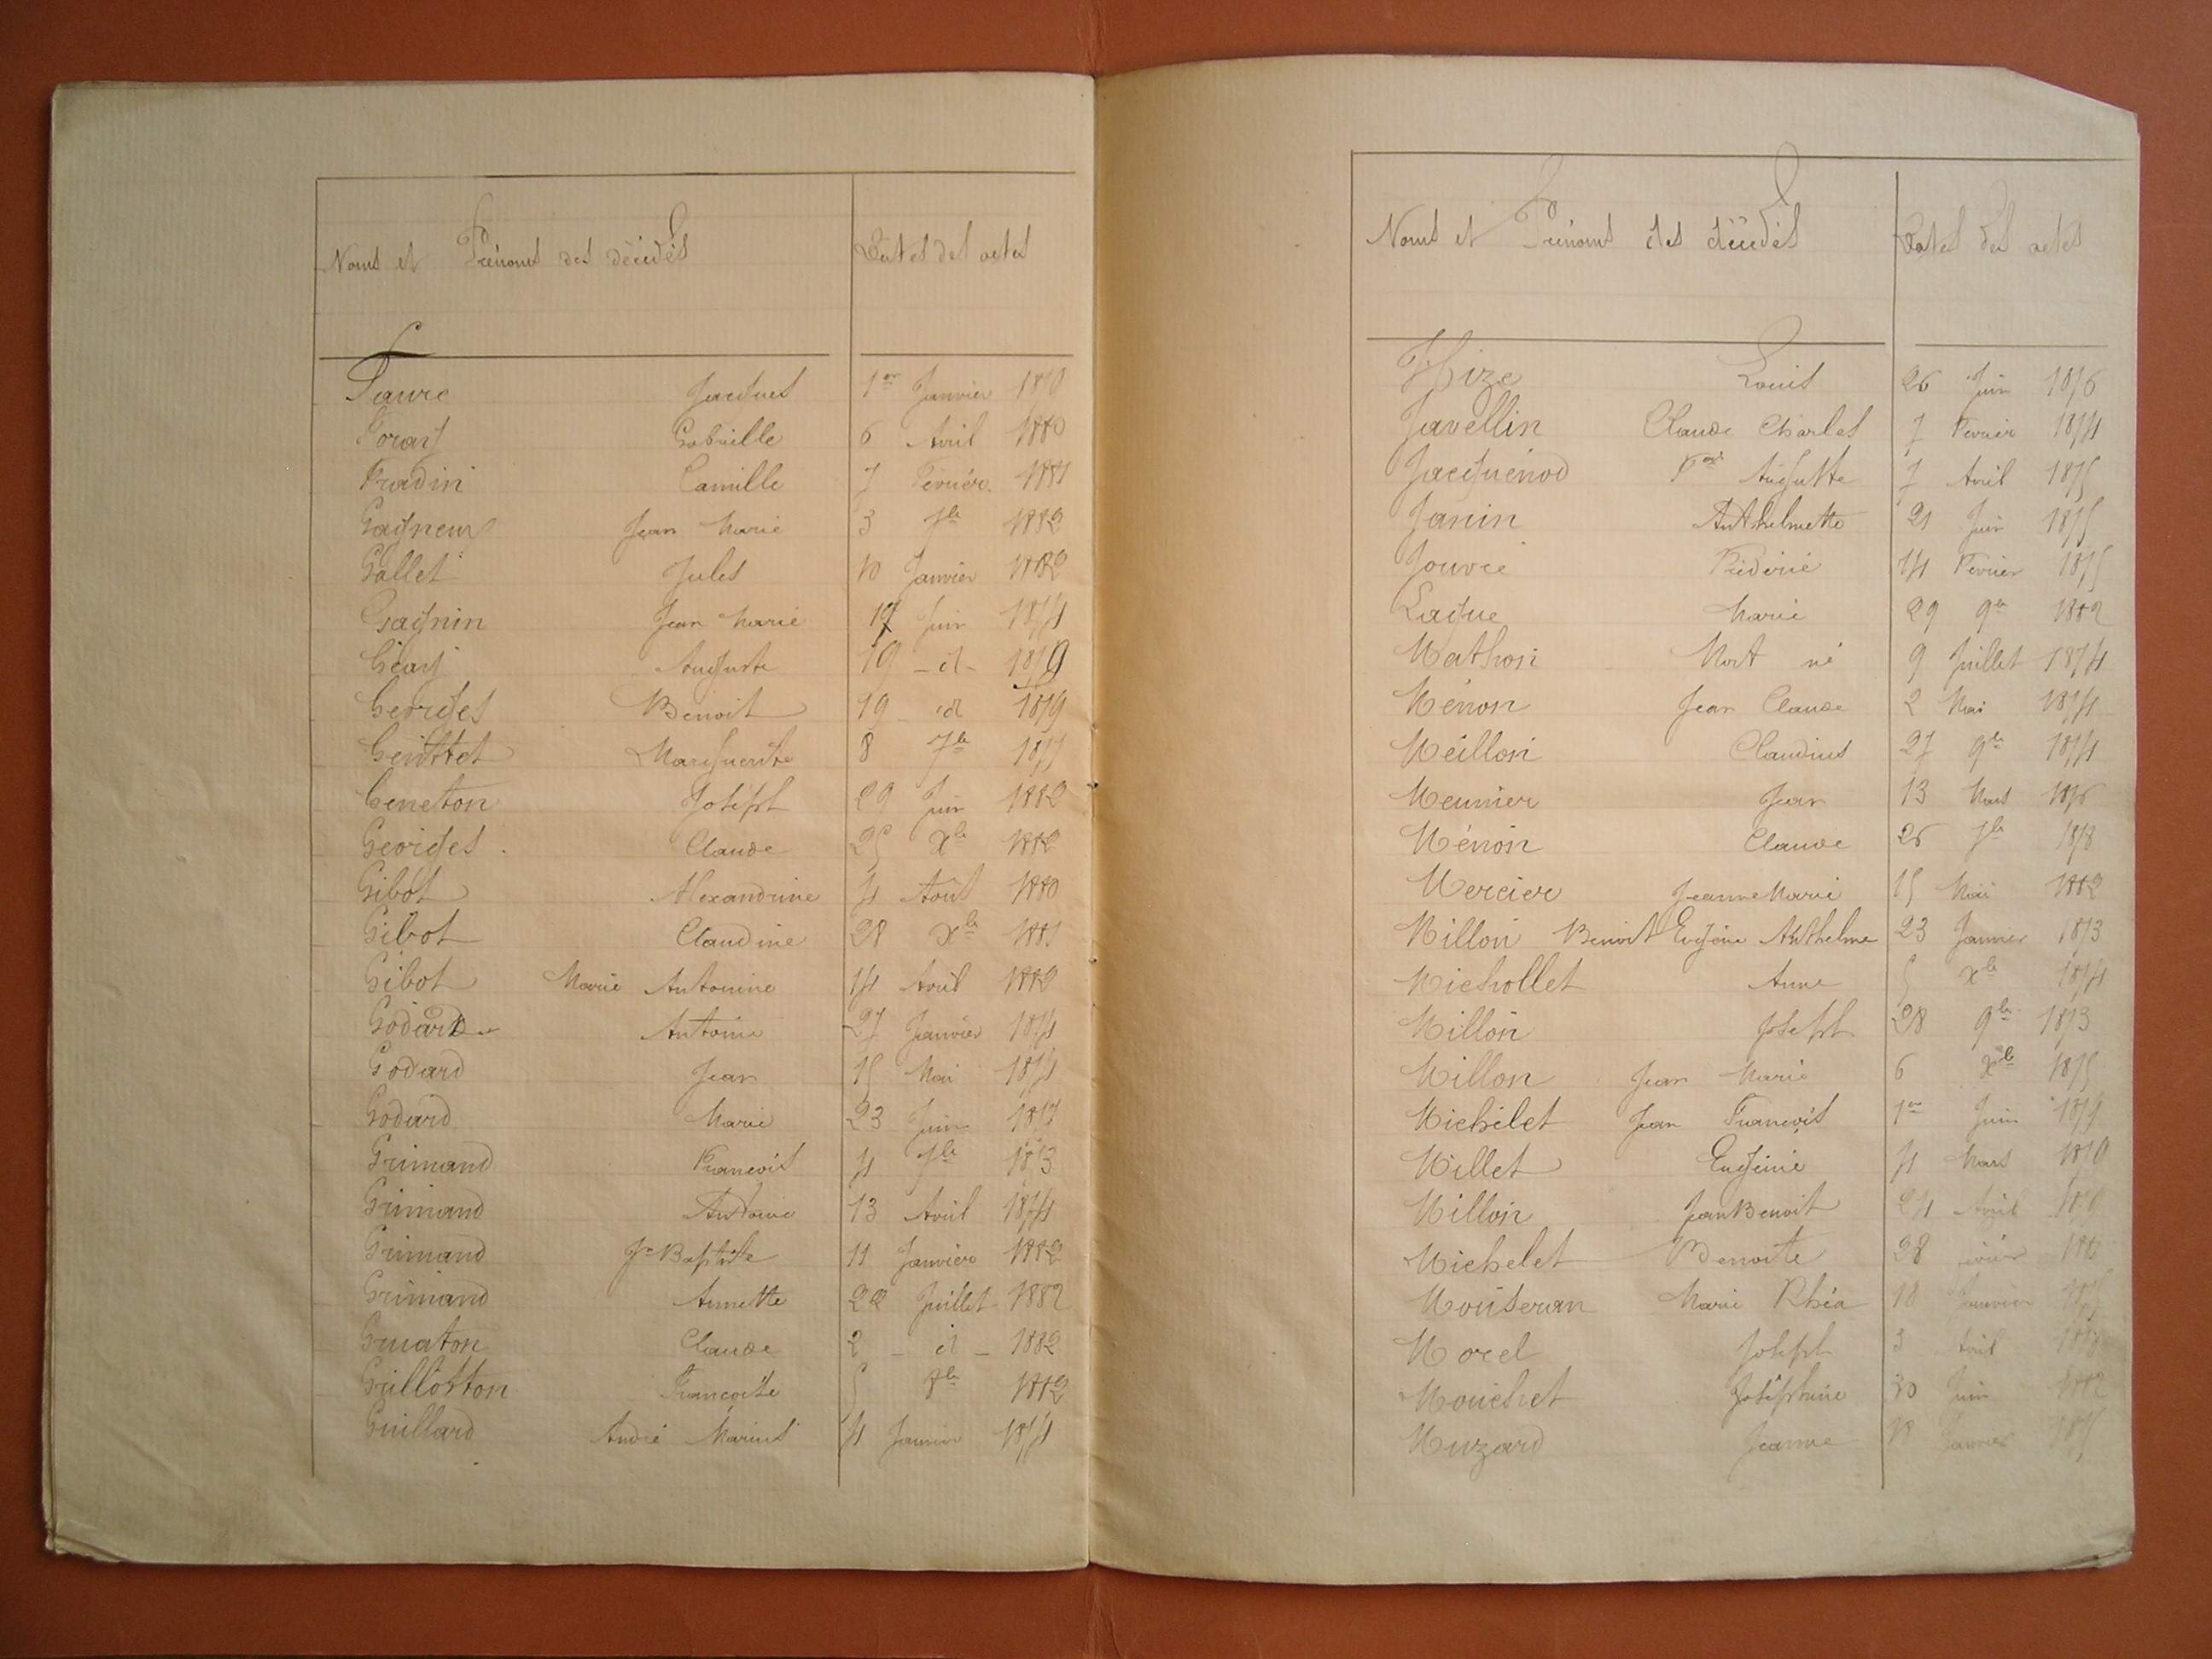 Noms et Prénoms des décédés Dates des actes
Faure Jacques 1er Janvier
Foray Gabrielle 6 Avril 1880
Fradin Camille 7 Février 1881
Gagneur Jean Marie 3 7bre 1882
Gallet Jules 10 Janvier 1882
Gagnin Jean Marie 17 Juin 1874
Géay Auguste 19 - d - 1879
Georges Benoit 19 id 1879
Marguerite 8 7bre 1877
Geneton Joseph 29 Juin 1882
Georges Claude 25 Xbre 1882
Gibot Alexandrine 4 Août 1880
Gibot Claudine 28 Xbre 1881
Gibot Marie Antonine 14 Avril 1882
Godard Antoine 27 Janvier 1874
Godard Jean 15 Mai 1874
Godard Marie 23 Juin
Grimand Francois 4 7bre 1873
Grimand Antoine 13 Avril 1874
Grimand Jn Baptiste 11 Janvier 1882
Grimand Annette 22 Juillet 1882
Claude 2 - d - 1882
Grillotton Francoise 1882
Guillard André Marius 4 Janvier 1874
Noms et Prénoms des décédés Dates des actes
Hize Louis 26 Juin 1876
Javellin Claude Charles 7 Fevrier 1874
Jacquenod Auguste 7 Avril 1875
Janin Anthelmette 21 Juin 1875
Jouvre Fréderic 14 Fevrier 1875
Lague Marie 29 9bre 1882
Mathon Mort né 9 Juillet 1874
Ménon Jean Claude 2 Mai 1874
Meillon Claudius 27 9bre 1874
Meunier Jean 13 Mars 1876
Ménon Claude 26 7bre 1878
Mercier Jeanne Marie 15 Mai 1882
Millon Benoit Eugène Anthelme 23 Janvier 1873
Michollet Anne 5 Xbre 1874
Millon Joseph 28 9bre 1873
Millon Jean Marie 6 Xbre 1875
Michelet Jean Francois 1er Juin
Millet Eugénie 4 Mars
Millon Jean Benoit 24 Avril
Michelet Benoite 28
Mouseran Marie Rhéa 18 Janvier
Morel Joseph 3 Avril 1878
Mouchet Joséphine 30 Juin 1882
Muzard Jeanne Janvier